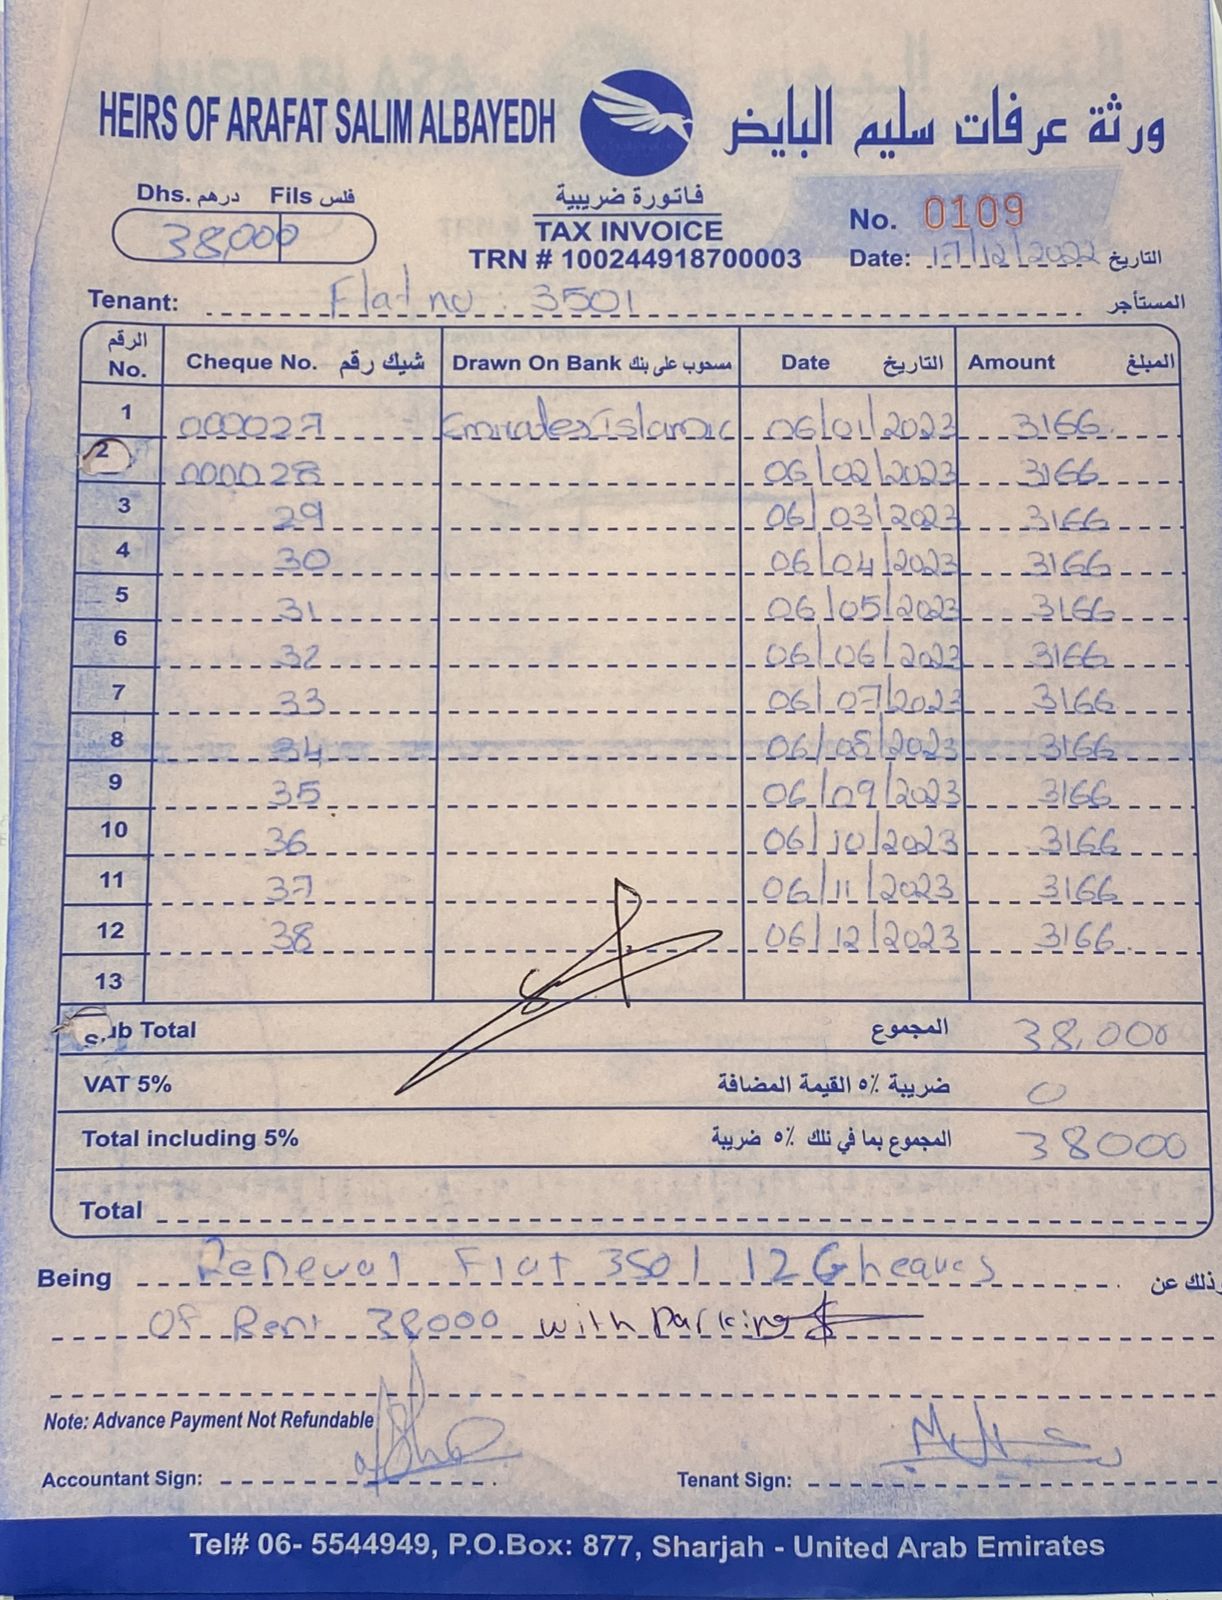 HEIRS OF ARAFAT SALIM ALBAYEDH ورثة عرفات سليم البايض
Dhs. درهم Fils فلس
38,000
فاتورة ضريبية
TAX INVOICE
TRN # 100244918700003
No. 0109
Date: 17/12/2022 التاريخ
Tenant: Flat no : 3501 المستأجر
الرقم No. Cheque No. شيك رقم Drawn On Bank مسحوب على بنك Date التاريخ Amount المبلغ
1 000027 Emirates islamic 06/01/2023 3166
2 000028 06/02/2023 3166
3 29 06/03/2023 3166
4 30 06/04/2023 3166
5 31 06/05/2023 3166
6 32 06/06/2023 3166
7 33 06/07/2023 3166
8 34 06/08/2023 3166
9 35 06/09/2023 3166
10 36 06/10/2023 3166
11 37 06/11/2023 3166
12 38 06/12/2023 3166
13
Sub Total المجموع 38,000
VAT 5% ضريبة ٥٪ القيمة المضافة 0
Total including 5% المجموع بما في ذلك ٥٪ ضريبة 38000
Total
Being Renewal Flat 3501 12 Cheaques وذلك عن
Of Rent 38000 with Parking
Note: Advance Payment Not Refundable
Accountant Sign: Tenant Sign:
Tel# 06- 5544949, P.O.Box: 877, Sharjah - United Arab Emirates